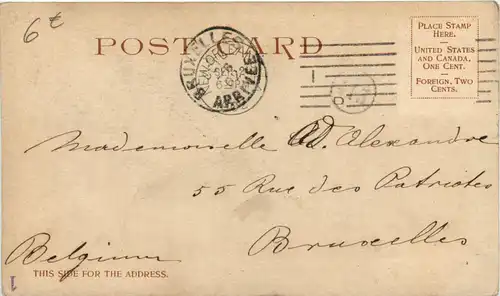 6¢
POST CARD
PLACE STAMP
HERE.
UNITED STATES
AND CANADA,
ONE CENT.
FOREIGN, TWO
CENTS.
BRUXELLES
ARRIVEE
Mademoiselle Ad. Alexandre
55 Rue des Patriotes
Bruxelles
Belgium
THIS SIDE FOR THE ADDRESS.
1